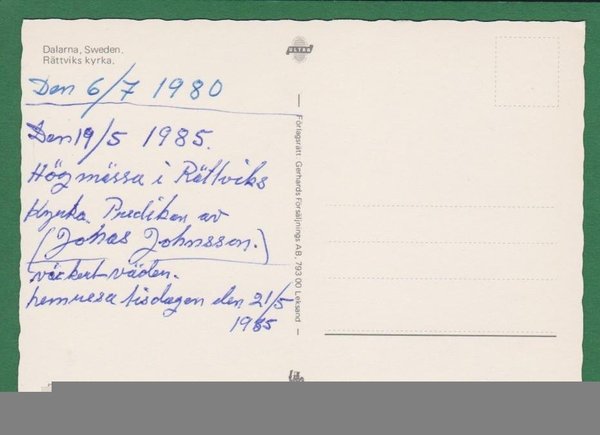 Dalarna, Sweden.
Rättviks kyrka.
ULTRA
Den 6/7 1980
Den 19/5 1985.
Högmässa i Rättviks
Kyrka. Predikan av
(Johas Johnsson.)
väckert väden.
hemresa tisdagen den 21/5
1985
Förlagsrätt Gerhards Försäljnings AB, 793 00 Leksand